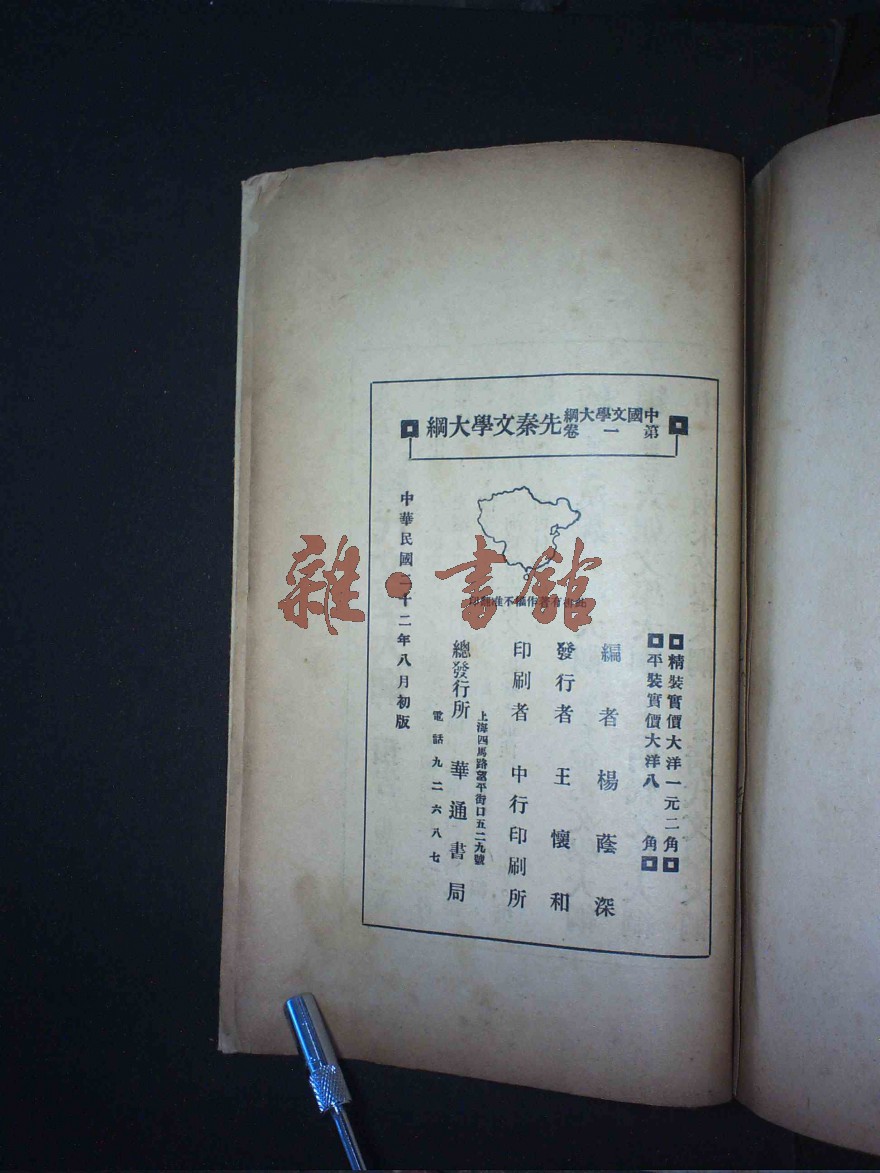 中國文學大綱
第一卷
先秦文學大綱
精裝實價大洋一元二角
平裝實價大洋八角
編者 楊蔭深
發行者 王懷和
印刷者 中行印刷所
上海四馬路望平街口五二九號
總發行所 華通書局
電話九二六八七
此書有著作權不准翻印
中華民國二十二年八月初版
雜·書館